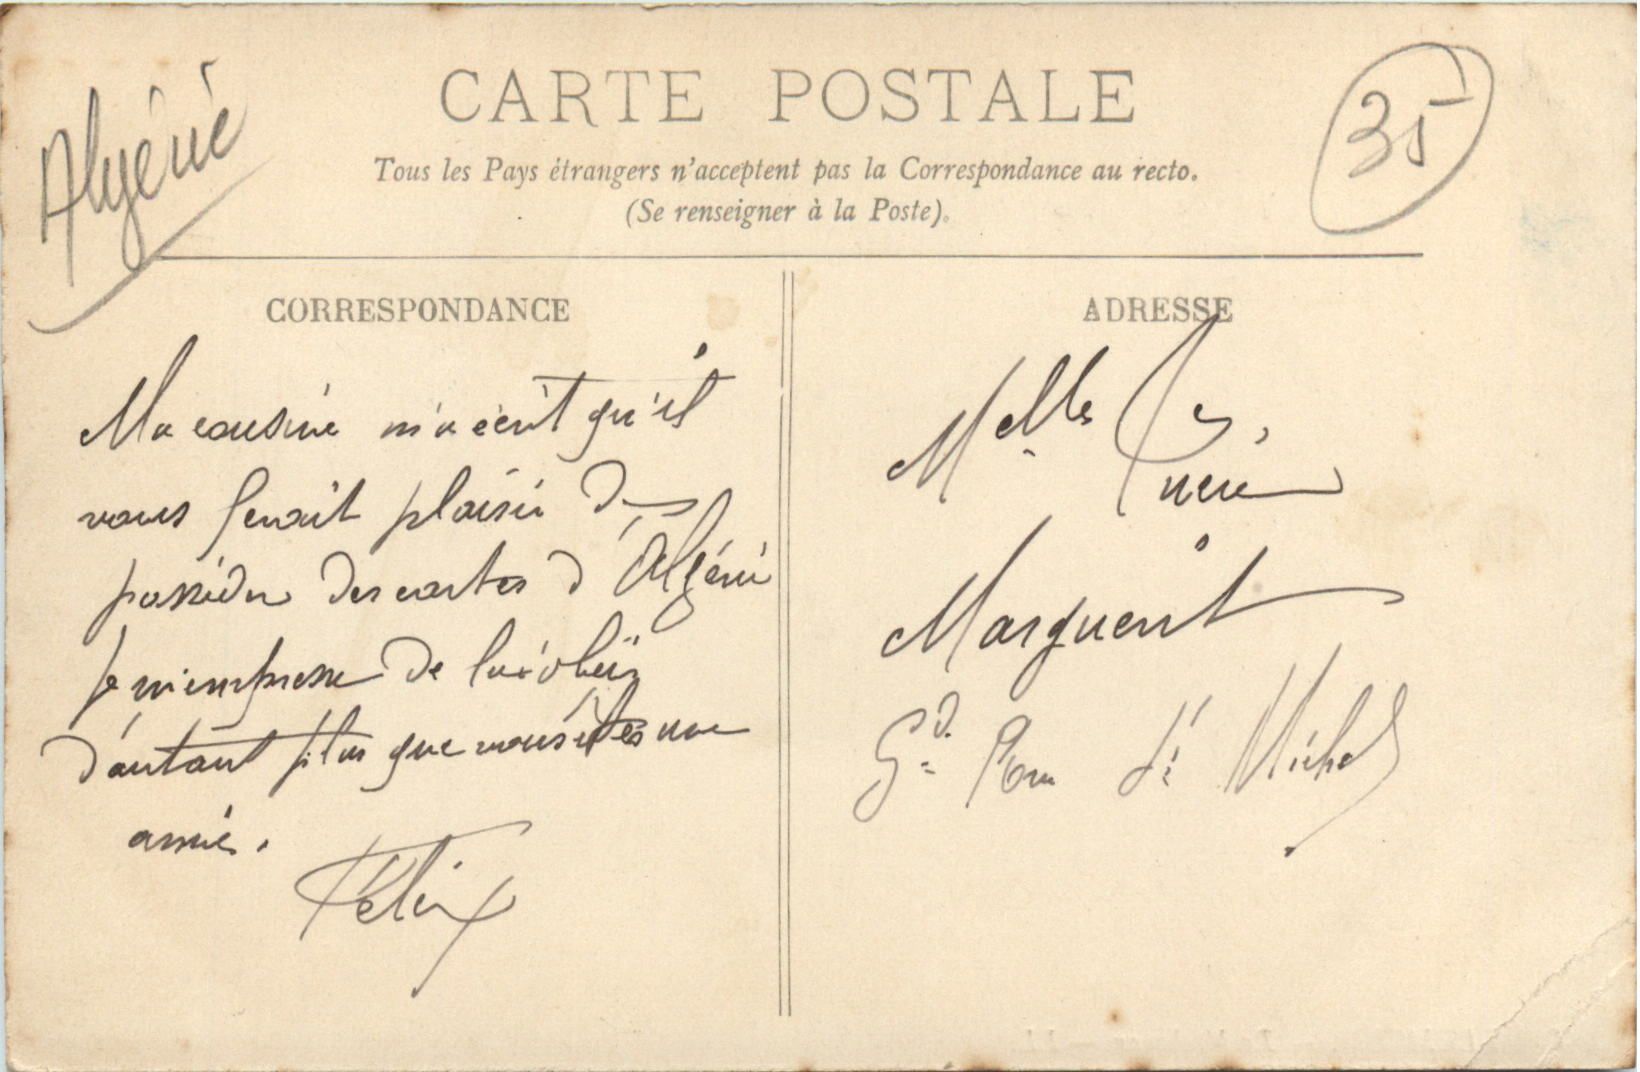 Algérie
CARTE POSTALE
35
Tous les Pays étrangers n'acceptent pas la Correspondance au recto.
(Se renseigner à la Poste).
CORRESPONDANCE
Ma cousine m'a écrit qu'il
vous ferait plaisir de
posséder des cartes d'Algérie
je m'empresse de lui obéir
d'autant plus que vous êtes une
amie.
Félix
ADRESSE
Melle Lucie
Marguerit
Gd Rue St Michel